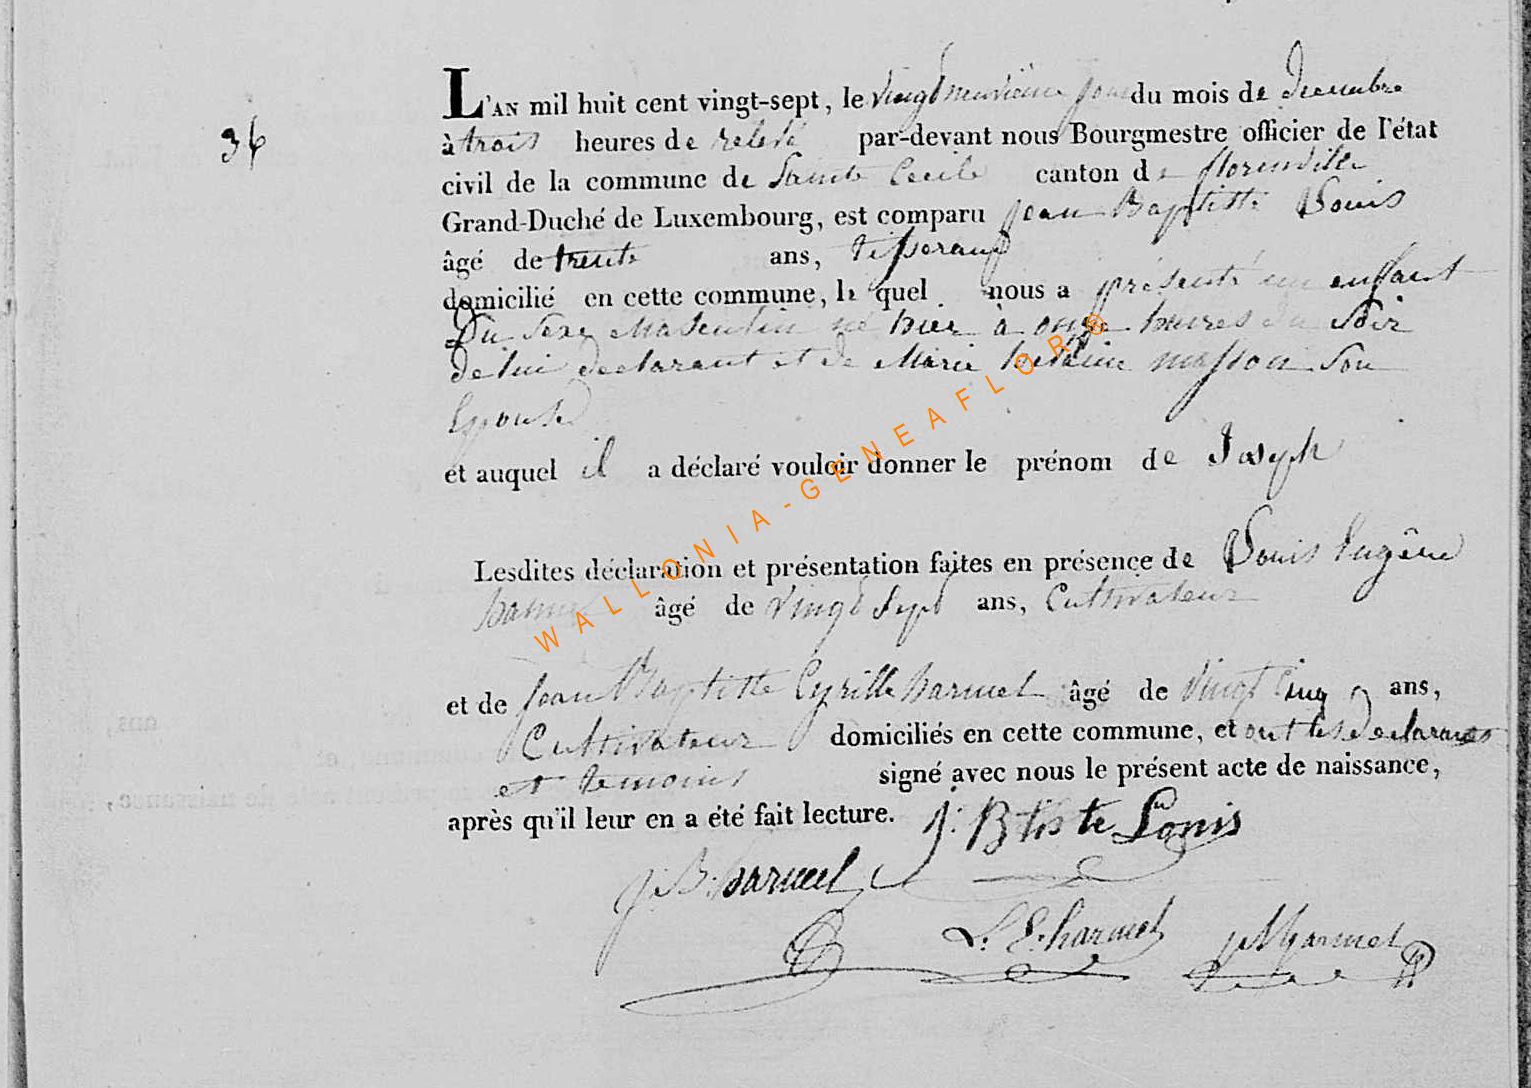 36
L'AN mil huit cent vingt-sept, le vingt neuvieme jour du mois de Decembre
à trois heures de relevé par-devant nous Bourgmestre officier de l'état
civil de la commune de Sainte Cecile canton de florenville
Grand-Duché de Luxembourg, est comparu jean Baptiste Louis
âgé de trente ans, tisserand
domicilié en cette commune, le quel nous a présenté un enfant
Du sexe masculin né hier à onze heures du soir
de lui declarant et de Marie masson son
Epouse
et auquel il a déclaré vouloir donner le prénom de Joseph
Lesdites déclaration et présentation faites en présence de Louis Eugêne
harmel âgé de vingt sept ans, Cultivateur
et de jean Baptiste Cyrille harmel âgé de vingt cinq ans,
Cultivateur domiciliés en cette commune, et ont les declarants
et temoins signé avec nous le présent acte de naissance,
après qu'il leur en a été fait lecture. J. Btiste Louis
j. B. harmel
L. E. harmel harmel
WALLONIA-GENEAFLOR®